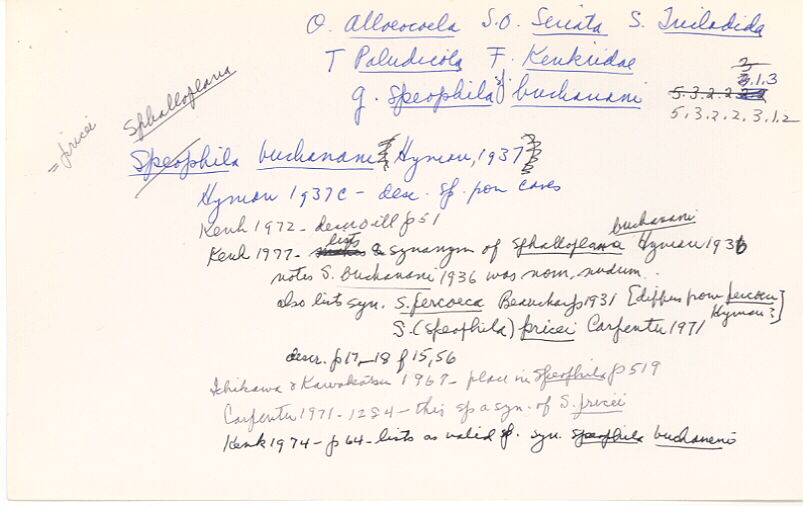 O. Alloeocoela S.O. Seriata S. Tricladida
T Paludicola F. Kenkiidae
g. Speophila buchanani
3
3.1.3
5.3.2.2
5.3.2.2.3.1.2
Sphalloplana
= pricei
Speophila buchanani Hyman, 1937
Hyman 1937c - desc. sp. from caves
Kenk 1972 - descr & ill p51
buchanani
lists
Kenk 1977 - synonym of Sphalloplana Hyman 1936
notes S. buchanani 1936 was nom. nudum.
also lists syn. S. percoeca Beauchamp 1931 [differs from percoeca Hyman?]
S. (Speophila) pricei Carpenter 1971
descr. p17-18 f 15,56
Ichikawa & Kawakatsu 1967 - place in Speophila p519
Carpenter 1971-1284 - this sp a syn. of S. pricei
Kenk 1974 - p64 - lists as valid sp. syn. Speophila buchanani